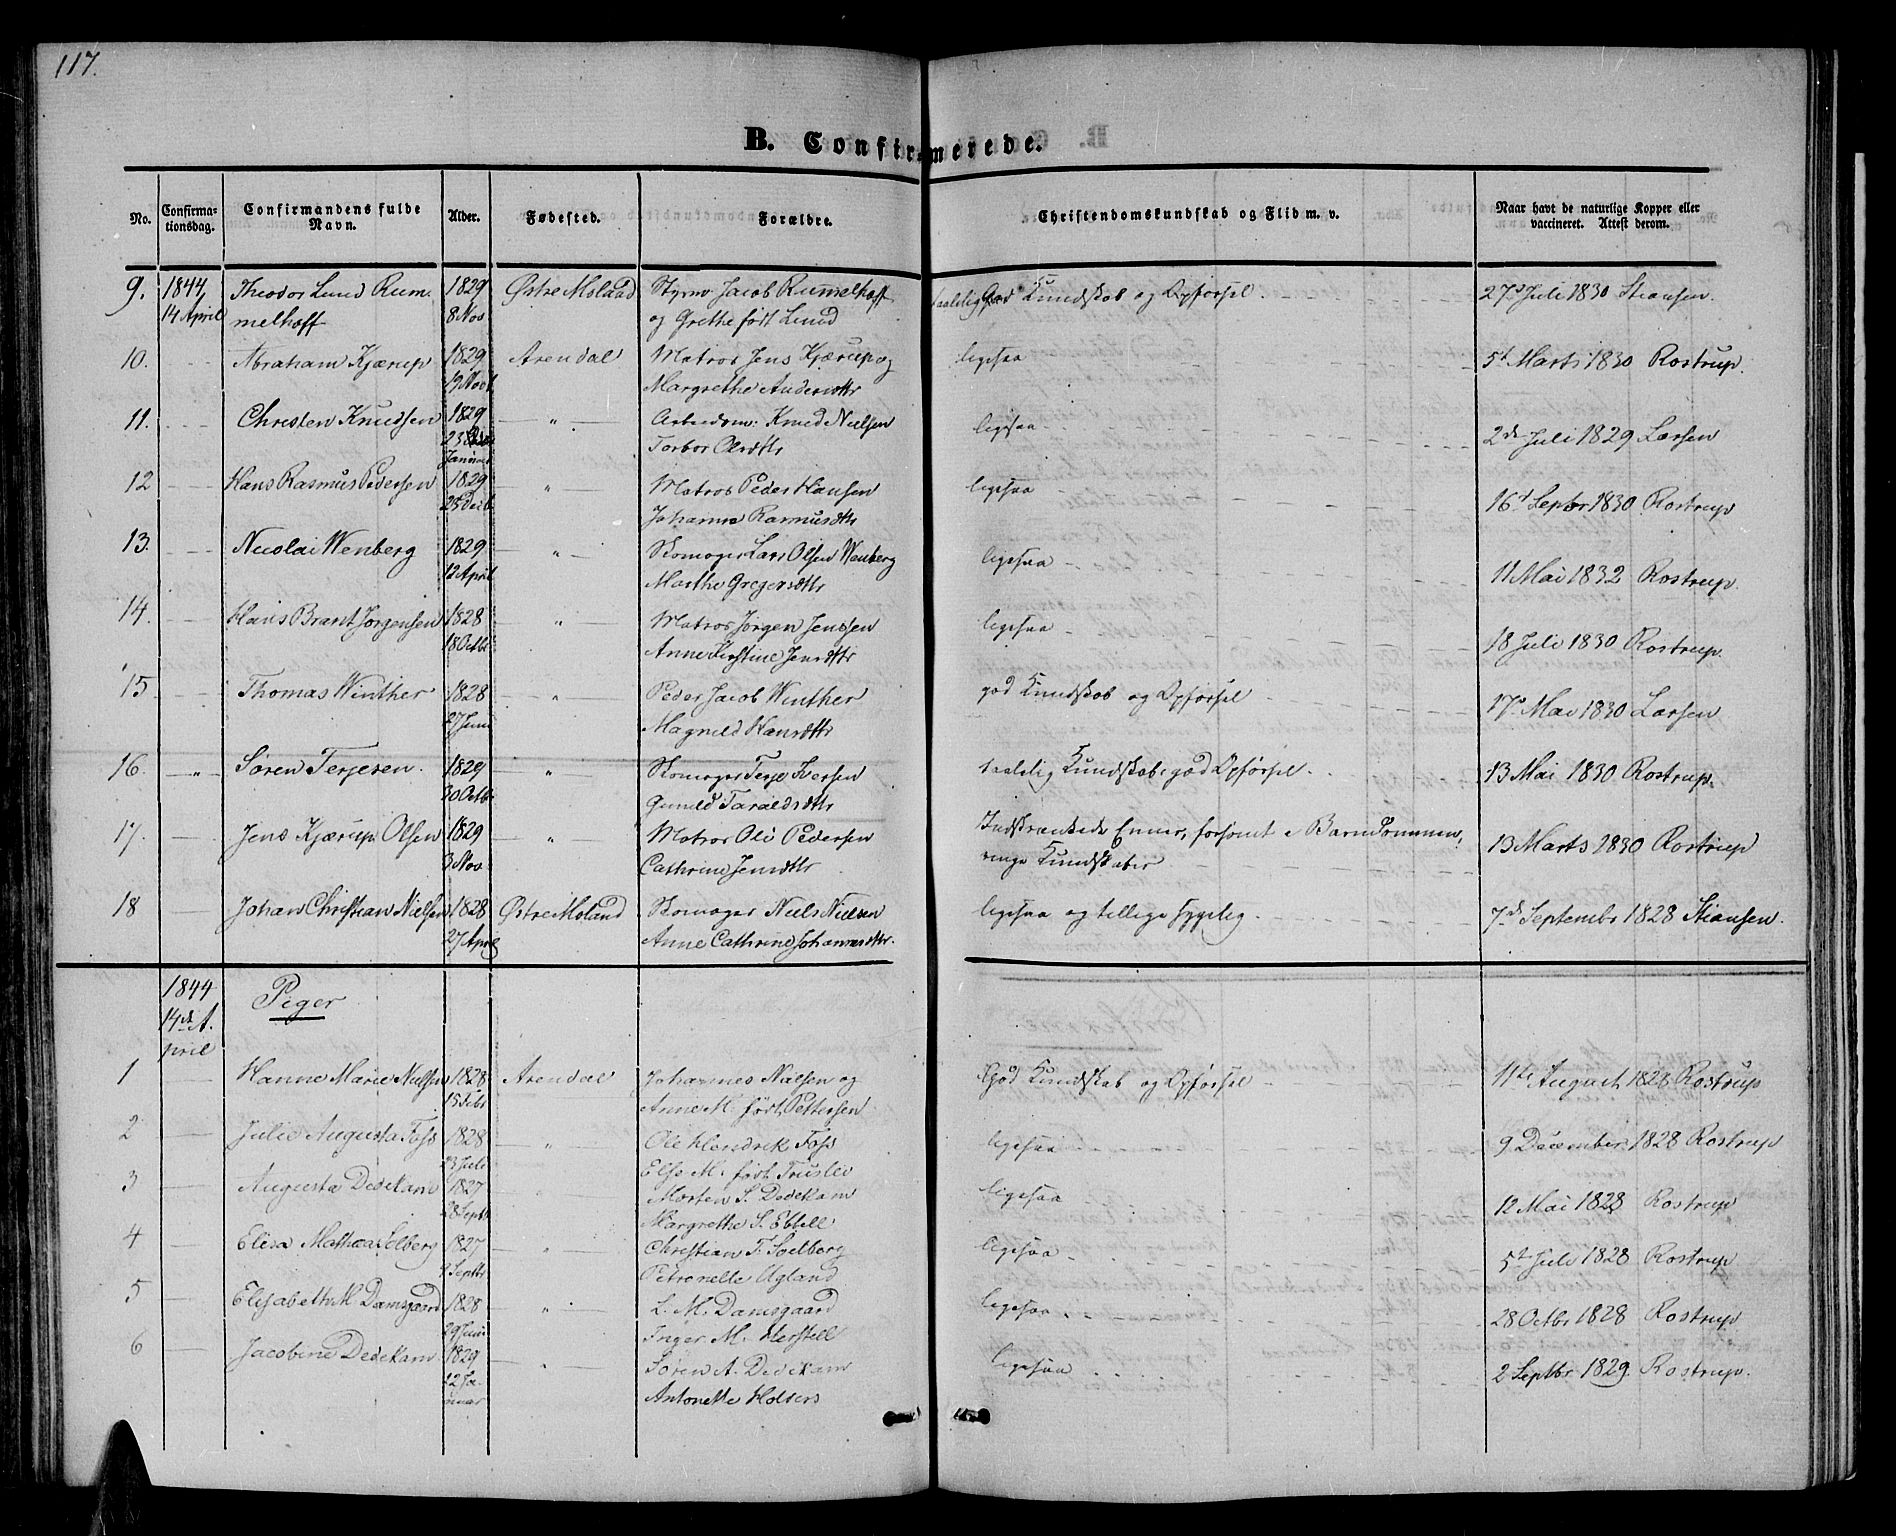 117.
B. Confirmerede.
No. Confirma-tionsdag. Confirmandens fulde Navn. Alder. Fødested. Forældre. Christendomskundskab og Flid m. v. Naar havt de naturlige Kopper eller vaccineret. Attest derom.
9. 1844 Theodor Lund Rum- 1829 Østre Moland Styrm. Jacob Rumelhoff taalelig God Kundskab og Opførsel. 27d Juli 1830 Stiansen.
14 April melhoff 8 Nov og Grethe født Lund
10. Abraham Kjærup 1829 Arendal Matros Jens Kjærup og ligesaa 5t Marts 1830 Rostrup.
19 Novb Margrethe Andersdttr
11. Christen Knudsen 1829 " Arbeidsm: Knud Nielsen ligesaa 2de Juli 1829 Larsen
23 Januar Torbor Olsdttr
12 Hans Rasmus Pedersen 1829 " Matros Peder Hansen ligesaa 16d Septbr 1830 Rostrup
25 Decb Johanne Rasmusdttr
13. Nicolai Wenberg 1829 " Skomager Lars Olsen Wenberg ligesaa 11 Mai 1832 Rostrup.
12 April Marthe Gregersdttr
14. Hans Brant Jørgensen 1828 " Matros Jørgen Jenssen ligesaa 18 Juli 1830 Rostrup.
18 Octbr Anne Kirstine Jensdttr
15 Thomas Winther 1828 " Peder Jacob Winther god Kundskab og Opførsel 17d Mai 1830 Larsen
27 Juni Magnild Hansdttr
16. " Søren Terjesen. 1829 " Skomager Terje Iversen taalelig Kundskab, god Opførsel. 13 Mai 1830 Rostrup.
30 Octbr Gunild Taraldsdttr
17. Jens Kjærup Olsen 1829 " Matros Ole Pedersen Indskrænkede Evner, forsømt i Barndommen, 13 Marts 1830 Rostrup
3 Nov Cathrine Jensdttr ringe Kundskaber
18 Johan Christian Nielsen 1828 Østre Moland Skomager Niels Nielsen ligesaa og tillige sygelig 7de Septembr 1828 Stiansen.
27 April Anne Cathrine Johannesdttr.
1844 Piger
14de A-
pril
1 Hanne Marie Nielsen 1828 Arendal Johannes Nielsen og God Kundskab og Opførsel 11te August 1828 Rostrup
15 Febr Anne M. født Pettersen
2 Julie Augusta Foss 1828 " Ole Hendrik Foss ligesaa 9 December 1828 Rostrup
23 Juli Else M. født
3 Augusta Dedekam 1827 " Morten S. Dedekam ligesaa 12 Mai 1828 Rostrup
28 Septb Margrethe S. Ebbell
4 Elisa Mathea Selberg 1827 " Christian F. Soelberg ligesaa 5t Juli 1828 Rostrup
Septbr Petronelle Ugland
5 Elisabeth M. Damsgaard 1828 " L. M. Damsgaard ligesaa 28 Octbr 1828 Rostrup
29 Juni Inger M. Herstell
6 Jacobine Dedekam 1829 " Søren A. Dedekam ligesaa 2 Septbr 1829. Rostrup.
12 Ja-
nuar Antonette Holsers